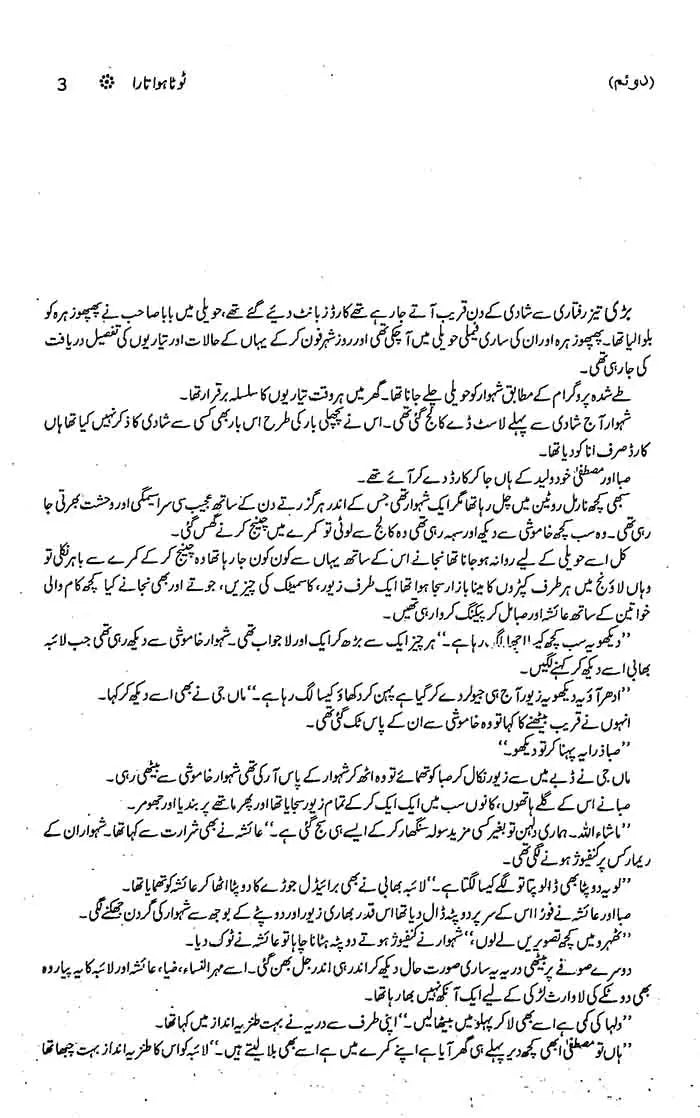 (دوئم) ٹوٹا ہوا تارا ❉ 3
بڑی تیز رفتاری سے شادی کے دن قریب آتے جا رہے تھے کارڈز بانٹ دیئے گئے تھے، حویلی میں بابا صاحب نے پھپھوزہرہ کو
بلوا لیا تھا۔ پھپھوزہرہ اور ان کی ساری فیملی حویلی میں آ چکی تھی اور روز شہر فون کر کے یہاں کے حالات اور تیاریوں کی تفصیل دریافت
کی جا رہی تھی۔
طے شدہ پروگرام کے مطابق شہوار کو حویلی چلے جانا تھا۔ گھر میں ہر وقت تیاریوں کا سلسلہ برقرار تھا۔
شہوار آج شادی سے پہلے لاسٹ ڈے کالج گئی تھی۔ اس نے پچھلی بار کی طرح اس بار بھی کسی سے شادی کا ذکر نہیں کیا تھا ہاں
کارڈ صرف انا کو دیا تھا۔
صبا اور مصطفیٰ خود ولید کے ہاں جا کر کارڈ دے کر آئے تھے۔
سبھی کچھ نارمل روٹین میں چل رہا تھا مگر ایک شہوار تھی جس کے اندر ہر گزرتے دن کے ساتھ عجیب سی سراسیمگی اور وحشت بھرتی جا
رہی تھی۔ وہ سب کچھ خاموشی سے دیکھ اور سہہ رہی تھی وہ کالج سے لوٹی تو کمرے میں چینج کرنے گھس گئی۔
کل اسے حویلی کے لیے روانہ ہو جانا تھا نجانے اس کے ساتھ یہاں سے کون کون جا رہا تھا وہ چینج کر کے کمرے سے باہر نکلی تو
وہاں لاؤنج میں ہر طرف کپڑوں کا مینا بازار سجا ہوا تھا ایک طرف زیور، کاسمیٹک کی چیزیں، جوتے اور بھی نجانے کیا کچھ کام والی
خواتین کے ساتھ عائشہ اور صبا مل کر پیکنگ کروا رہی تھیں۔
’’دیکھو یہ سب کچھ کیسا اچھا لگ رہا ہے۔‘‘ ہر چیز ایک سے بڑھ کر ایک اور لاجواب تھی۔ شہوار خاموشی سے دیکھ رہی تھی جب لائبہ
بھابی اسے دیکھ کر کہنے لگیں۔
’’ادھر آؤ یہ دیکھو یہ زیور آج ہی جیولر دے کر گیا ہے پہن کر دکھاؤ کیسا لگ رہا ہے۔‘‘ ماں جی نے بھی اسے دیکھ کر کہا۔
انہوں نے قریب بیٹھنے کا کہا تو وہ خاموشی سے ان کے پاس ٹک گئی تھی۔
’’صبا ذرا یہ پہنا کر تو دیکھو۔‘‘
ماں جی نے ڈبے میں سے زیور نکال کر صبا کو تھمائے تو وہ اٹھ کر شہوار کے پاس آ رکی تھی شہوار خاموشی سے بیٹھی رہی۔
صبا نے اس کے گلے ہاتھوں، کانوں سب میں ایک ایک کر کے تمام زیور سجایا تھا اور پھر ماتھے پر بندیا اور جھومر۔
’’ماشاء اللہ۔ ہماری دلہن تو بغیر کسی مزید سولہ سنگھار کر کے ایسے ہی سج گئی ہے۔‘‘ عائشہ نے بھی شرارت سے کہا تھا۔ شہوار ان کے
ریمارکس پر کنفیوژ ہونے لگی تھی۔
’’لو یہ دوپٹا بھی ڈالو پتا تو لگے کیسا لگتا ہے۔‘‘ لائبہ بھابی نے بھی برائیڈل جوڑے کا دوپٹا اٹھا کر عائشہ کو تھمایا تھا۔
صبا اور عائشہ نے فوراً اس کے سر پر دوپٹہ ڈال دیا تھا اس قدر بھاری زیور اور دوپٹے کے بوجھ سے شہوار کی گردن جھکنے لگی۔
’’ٹھہرو میں کچھ تصویریں لے لوں،‘‘ شہوار نے کنفیوژ ہوتے دوپٹہ ہٹانا چاہا تو عائشہ نے ٹوک دیا۔
دوسرے صوفے پر بیٹھی دریہ یہ ساری صورت حال دیکھ کر اندر ہی اندر جل بھن گئی۔ اسے مہرالنساء، ضیا، عائشہ اور لائبہ کا یہ پیار وہ
بھی دو ٹکے کی لاوارث لڑکی کے لیے ایک آنکھ نہیں بھا رہا تھا۔
’’دلہا کی کمی ہے اسے بھی لا کر پہلو میں بیٹھا لیں۔‘‘ اپنی طرف سے دریہ نے بہت طنزیہ انداز میں کہا تھا۔
’’ہاں تو مصطفیٰ ابھی کچھ دیر پہلے ہی گھر آیا ہے اپنے کمرے میں ہے اسے بھی بلا لیتے ہیں۔‘‘ لائبہ کو اس کا طنزیہ انداز بہت چبھا تھا